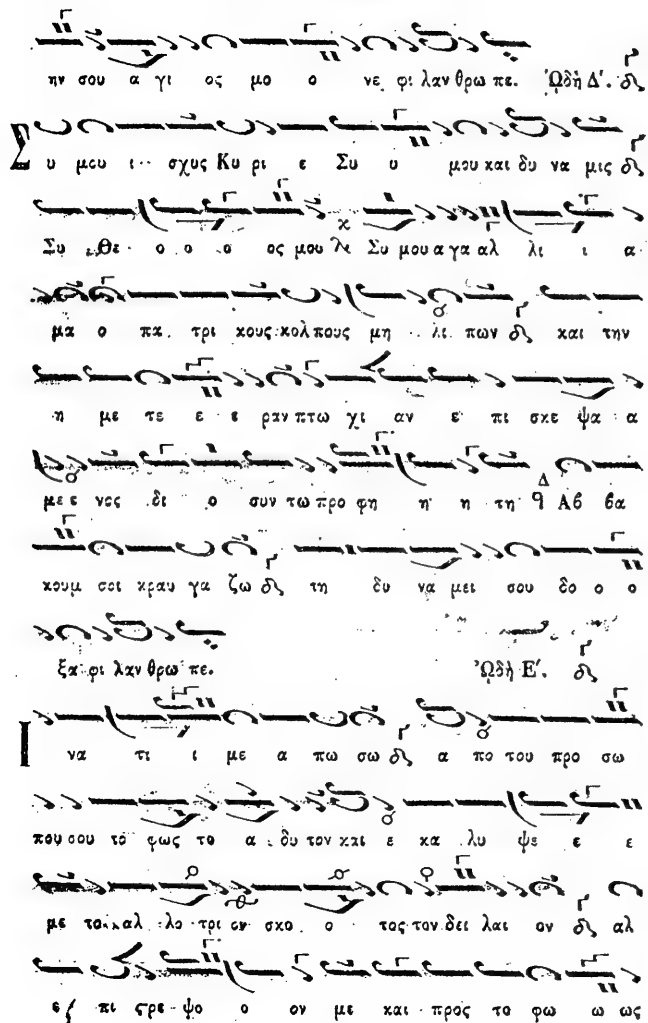 ην σου α γι ος μο ο νε φι λαν θρω πε. Ὠδὴ Δ΄.
Συ μου ι σχυς Κυ ρι ε Συ υ μου και δυ να μις
Συ Θε ο ο ο ος μου Συ μου α γα αλ λι ι α
μα ο πα τρι κους κολ πους μη λι πων και την
η με τε ε ε ραν πτω χι αν ε πι σκε ψα α
με ε νος δι ο συν τω προ φη η η τη Δ Αβ βα
κουμ σοι κραυ γα ζω τη δυ να μει σου δο ο ο
ξα φι λαν θρω πε. Ὠδὴ Ε΄.
Ι να τι ι με α πω σω α πο του προ σω
που σου το φως το α δυ τον και ε κα λυ ψε ε ε
με το καλ λο τρι ον σκο ο τος τον δει λαι ον αλ
ε πι στρε ψο ο ον με και προς το φω ω ως